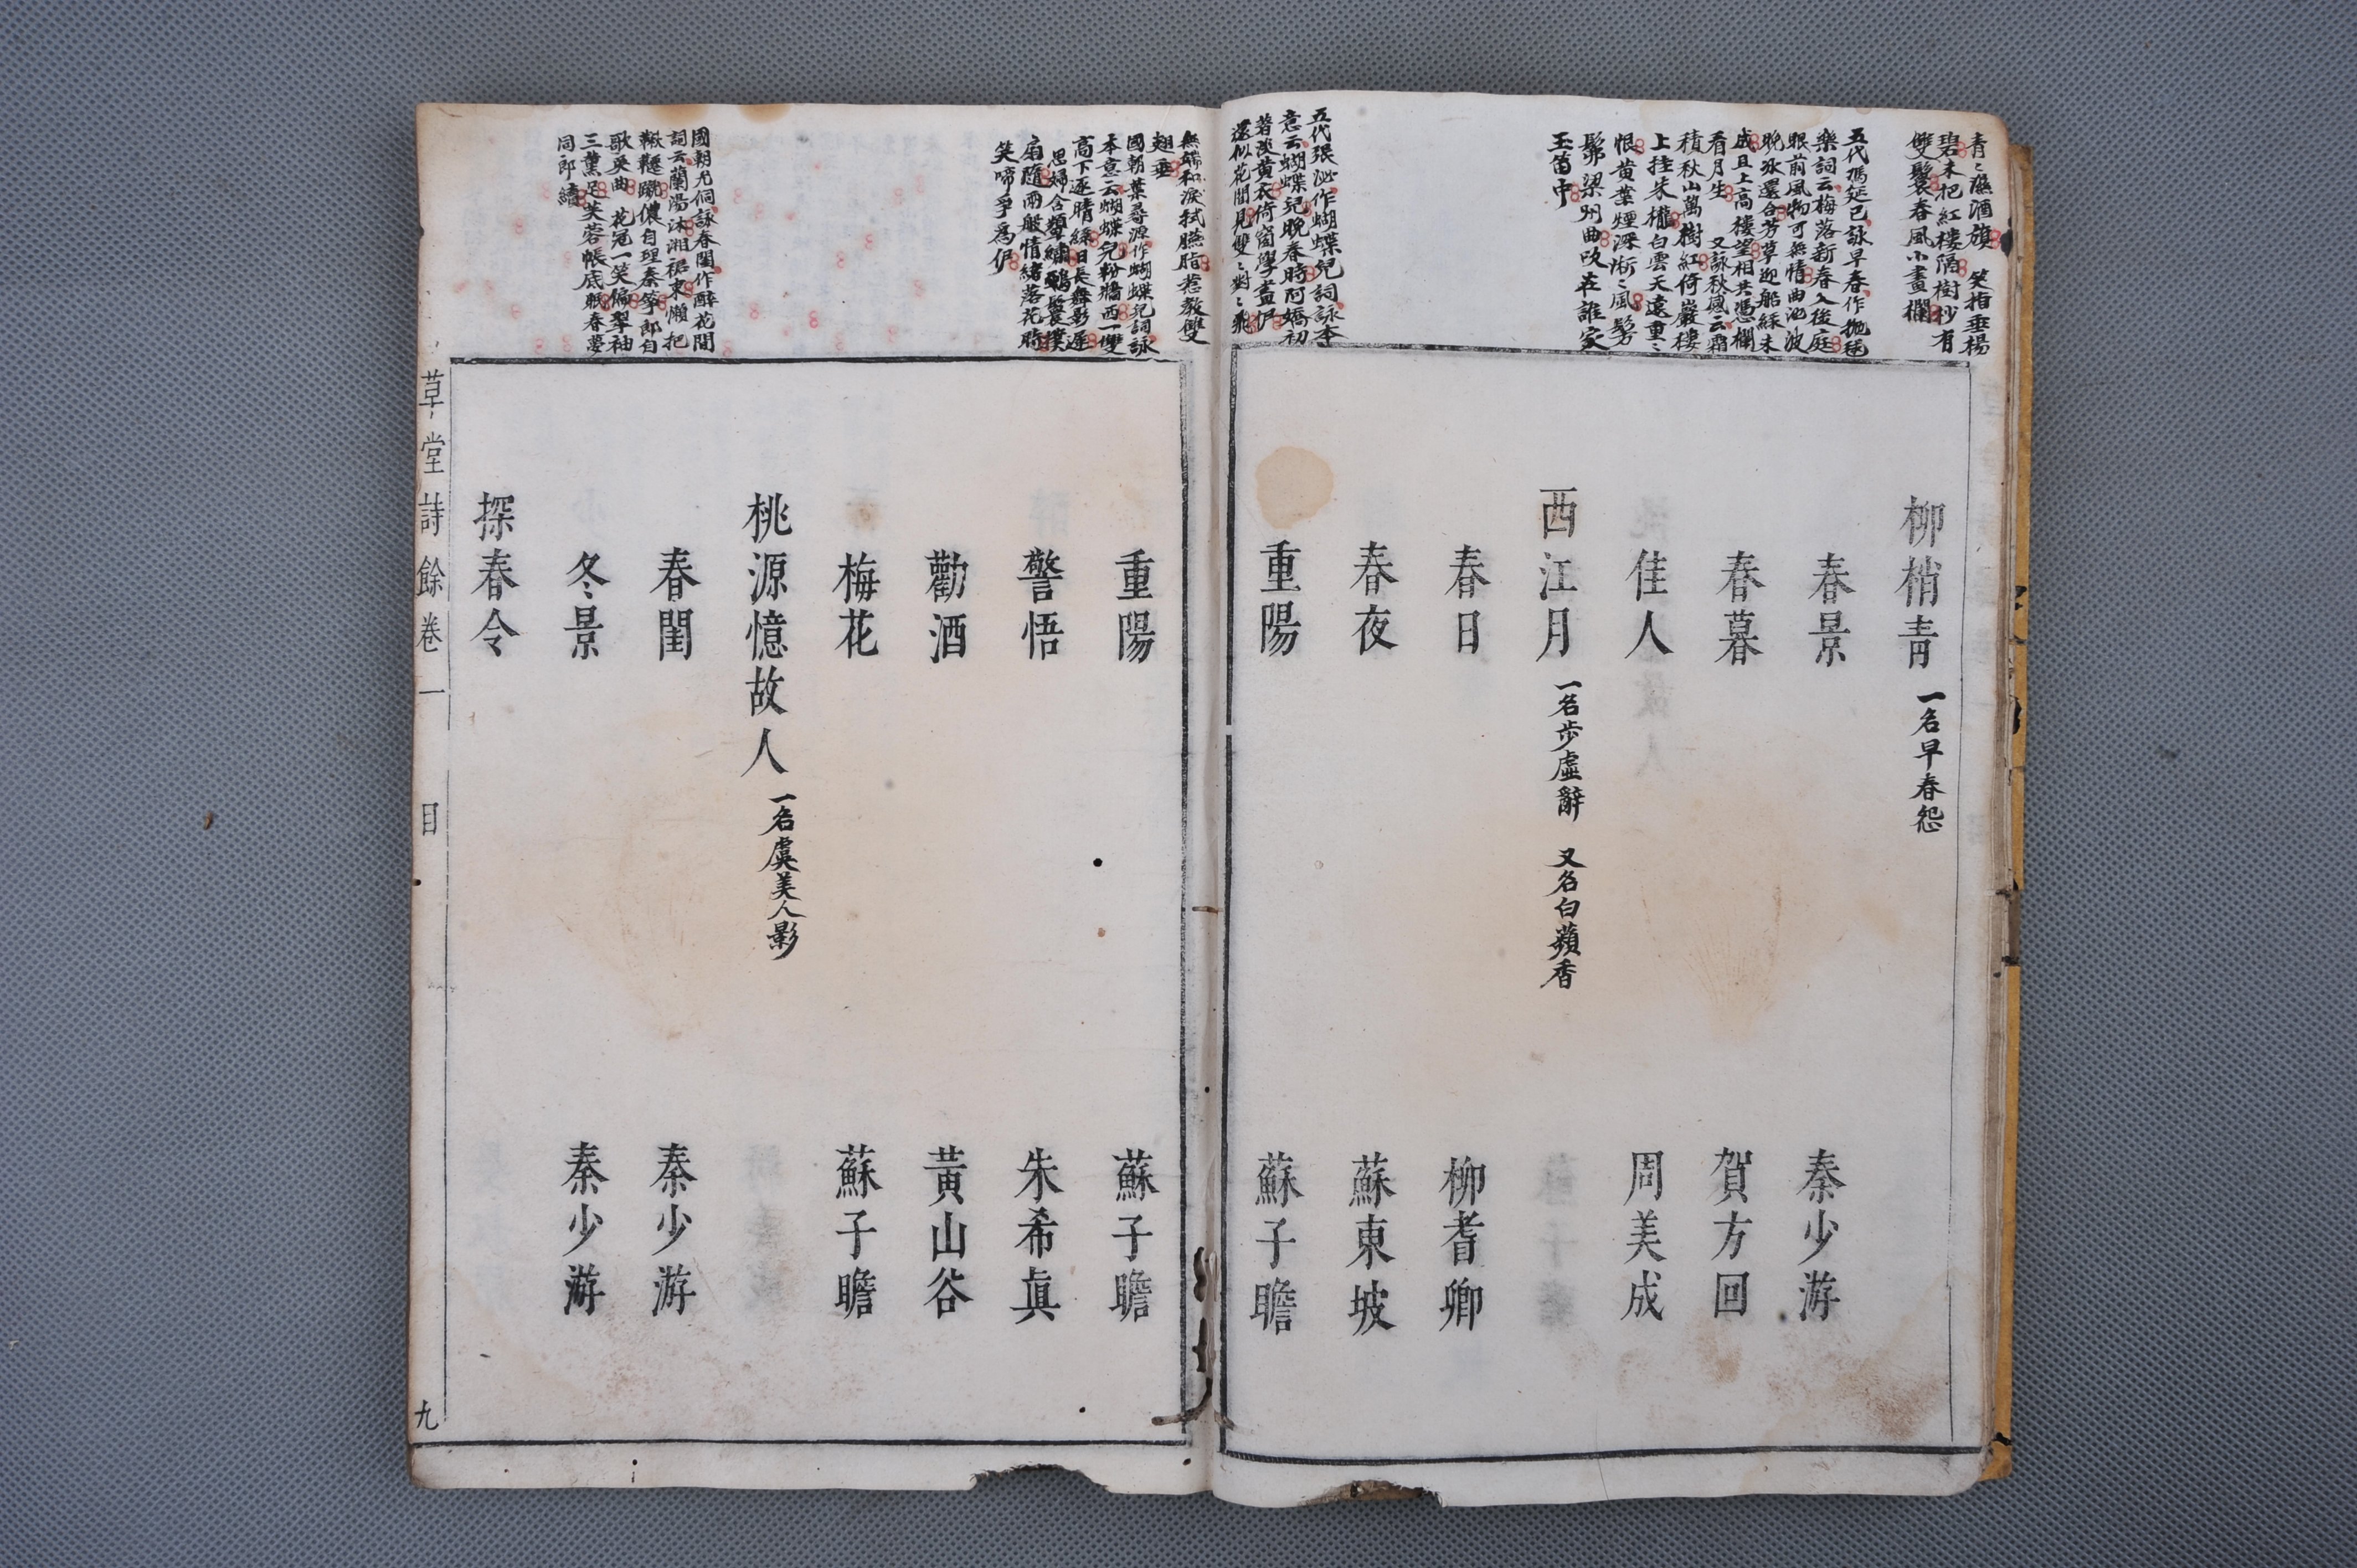 青〻蘸酒旗　笑指垂楊
碧未把紅樓隔樹杪有
雙鬟春風小畫欄
五代馮延巳詠早春作抛毬
樂詞云梅落新春入後庭
眼前風物可無情曲池波
晚氷還合芳草迎船綠未
成且上高樓望相共憑欄
看月生　又詠秋感云霜
積秋山萬樹紅倚巖樓
上挂朱櫳白雲天遠重〻
恨黄葉煙深淅〻風髣
髴梁州曲吹在誰家
玉笛中
五代張泌作蝴蝶兒詞詠本
意云蝴蝶兒晚春時阿嬌初
著淡黄衣倚窗學畫伊
還似花間見雙〻對〻飛
柳梢青　一名早春怨
春景　秦少游
春暮　賀方回
佳人　周美成
西江月　一名步虛辭　又名白蘋香
春日　柳耆卿
春夜　蘇東坡
重陽　蘇子瞻
無端和淚拭臙脂惹教雙
翅垂
國朝葉尋源作蝴蝶兒詞詠
本意云蝴蝶兒粉牆西一雙
高下逐晴絲日長舞影遲
思婦含顰繡鸝鬟撲
扇隨兩般情緒落花時
笑啼爭爲伊
國朝尤侗詠春閨作醉花間
詞云蘭湯沐湘裙束懶把
鞦韆蹴儂自理秦箏郎自
歌吳曲　花冠一笑偏翠袖
三薰足芙蓉帳底眠春夢
同郎續
重陽　蘇子瞻
警悟　朱希眞
勸酒　黃山谷
梅花　蘇子瞻
桃源憶故人　一名虞美人影
春閨　秦少游
冬景　秦少游
探春令
草堂詩餘卷一　目　九